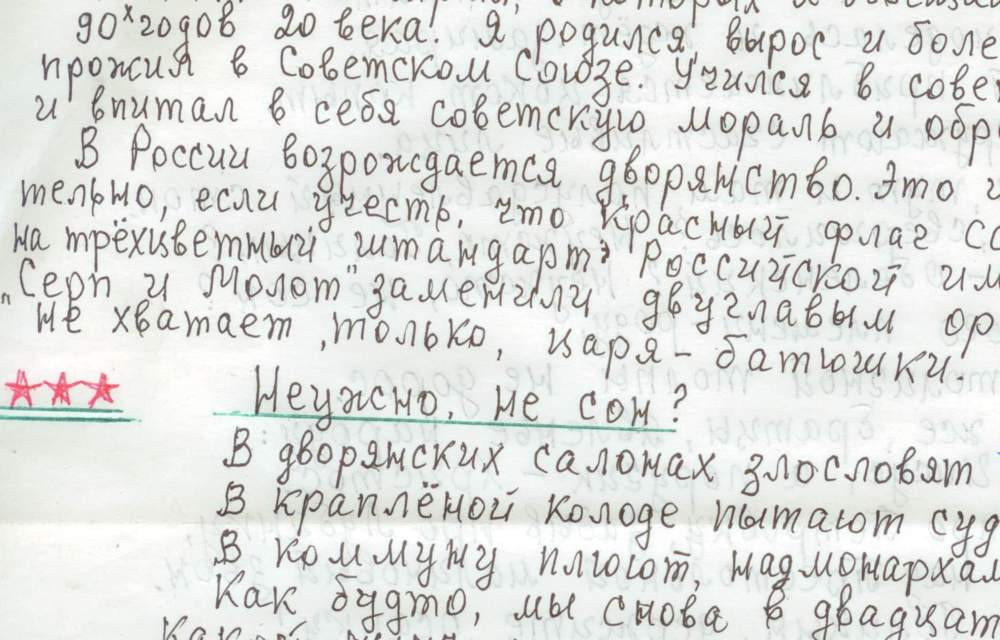 90х годов 20 века. Я родился, вырос и боле
прожил в Советском Союзе. Учился в сове
и впитал в себя советскую мораль и обр
В России возрождается дворянство. Это
тельно, если учесть, что Красный флаг
на трёхцветный штандарт Российской им
"Серп и Молот" заменили двуглавым ор
не хватает, только, царя-батюшки.
Неужно, не сон?
В дворянских салонах злословят
В краплёной колоде пытают суд
В коммуну плюют, надмонархам
Как будто, мы снова в двадцат